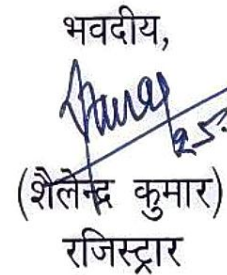 भवदीय,
(शैलेन्द्र कुमार)
रजिस्ट्रार